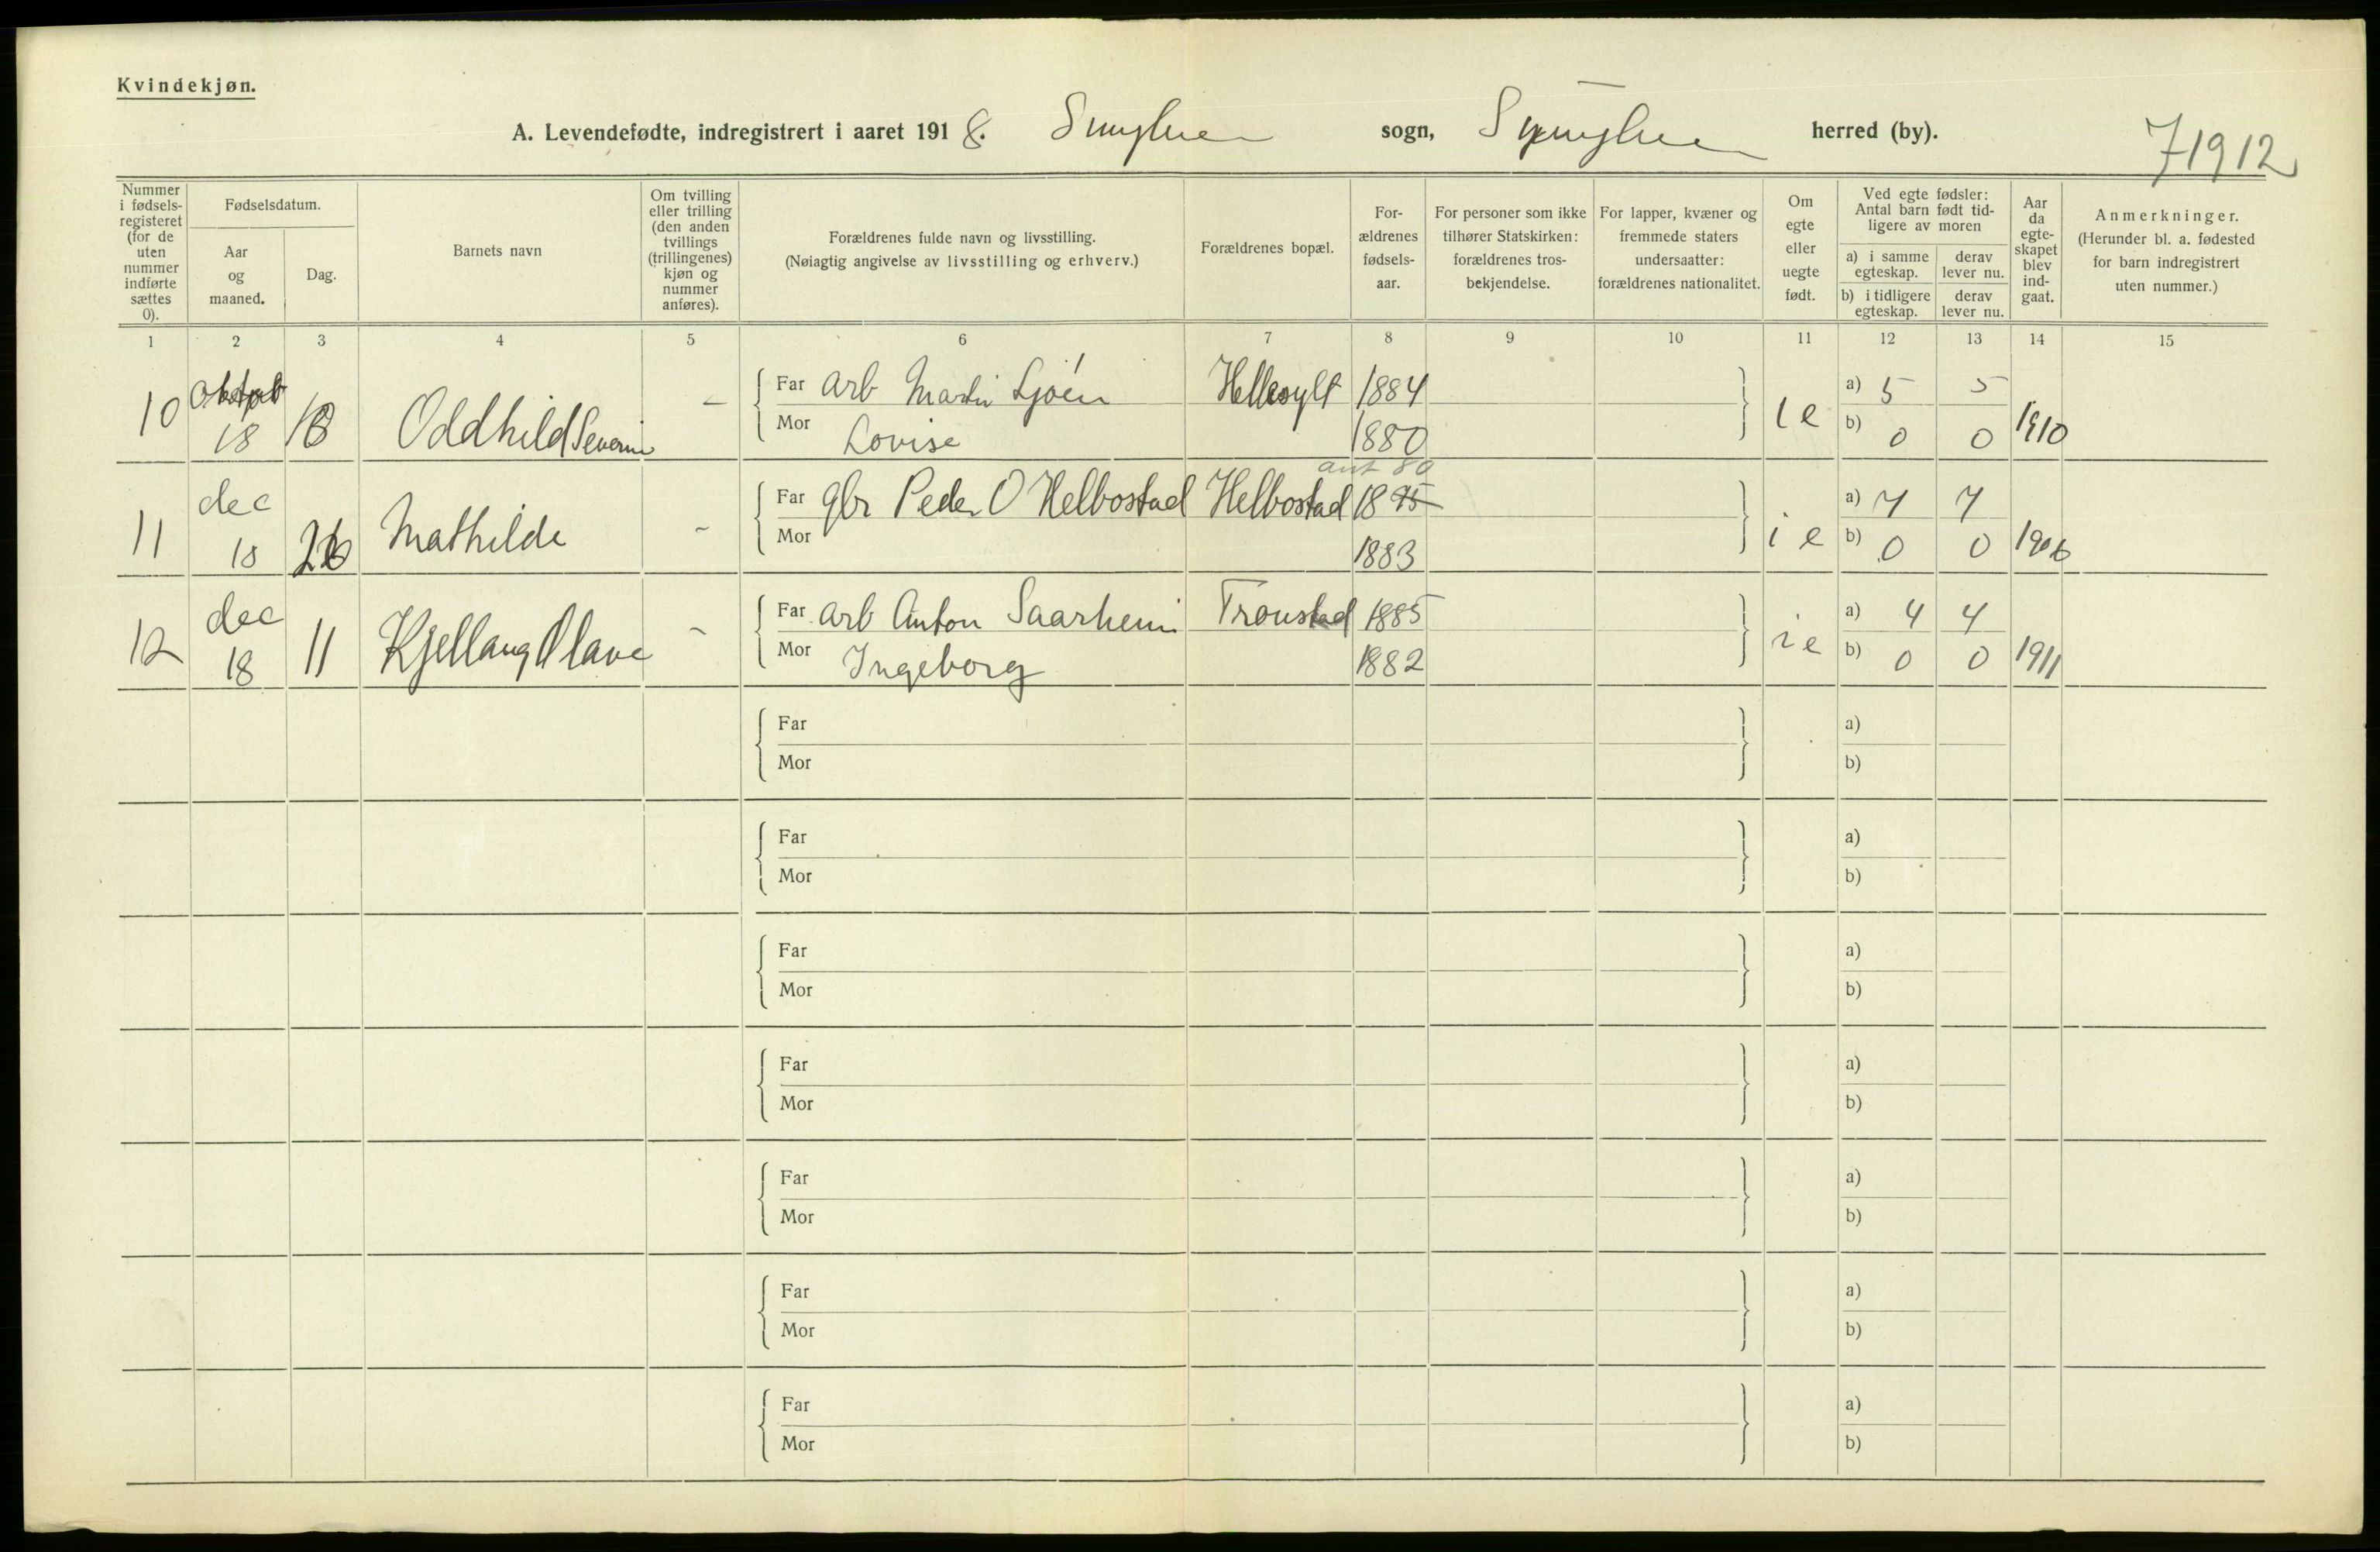 Kvindekjøn.
A. Levendefødte, indregistrert i aaret 1918. Sunylven sogn, Sunylven herred (by).
71912
Nummer i fødsels-registeret (for de uten nummer indførte sættes 0).
Fødselsdatum.
Aar og maaned.
Dag.
Barnets navn
Om tvilling eller trilling (den anden tvillings (trillingenes) kjøn og nummer anføres).
Forældrenes fulde navn og livsstilling.
(Nøiagtig angivelse av livsstilling og erhverv.)
Forældrenes bopæl.
For-ældrenes fødsels-aar.
For personer som ikke tilhører Statskirken: forældrenes tros-bekjendelse.
For lapper, kvæner og fremmede staters undersaatter: forældrenes nationalitet.
Om egte eller uegte født.
Ved egte fødsler: Antal barn født tid-ligere av moren
a) i samme egteskap.
derav lever nu.
b) i tidligere egteskap.
derav lever nu.
Aar da egte-skapet blev ind-gaat.
Anmerkninger.
(Herunder bl. a. fødested for barn indregistrert uten nummer.)
1 2 3 4 5 6 7 8 9 10 11 12 13 14 15
10 Oktob 18 Oddhild Severine - Far Arb Martin Ljøen Hellesylt 1884 a) 5 5
Mor Lovise 1880 b) 0 0 1910
ant 80
11 dec 18 26 Mathilde - Far gbr Peder O Helbostad Helbostad 1875 a) 7 7
Mor 1883 i e b) 0 0 1906
12 dec 18 11 Kjellaug Olave - Far arb Anton Saarheim Tronstad 1885 a) 4 4
Mor Ingeborg 1882 i e b) 0 0 1911
Far a)
Mor b)
Far a)
Mor b)
Far a)
Mor b)
Far a)
Mor b)
Far a)
Mor b)
Far a)
Mor b)
Far a)
Mor b)